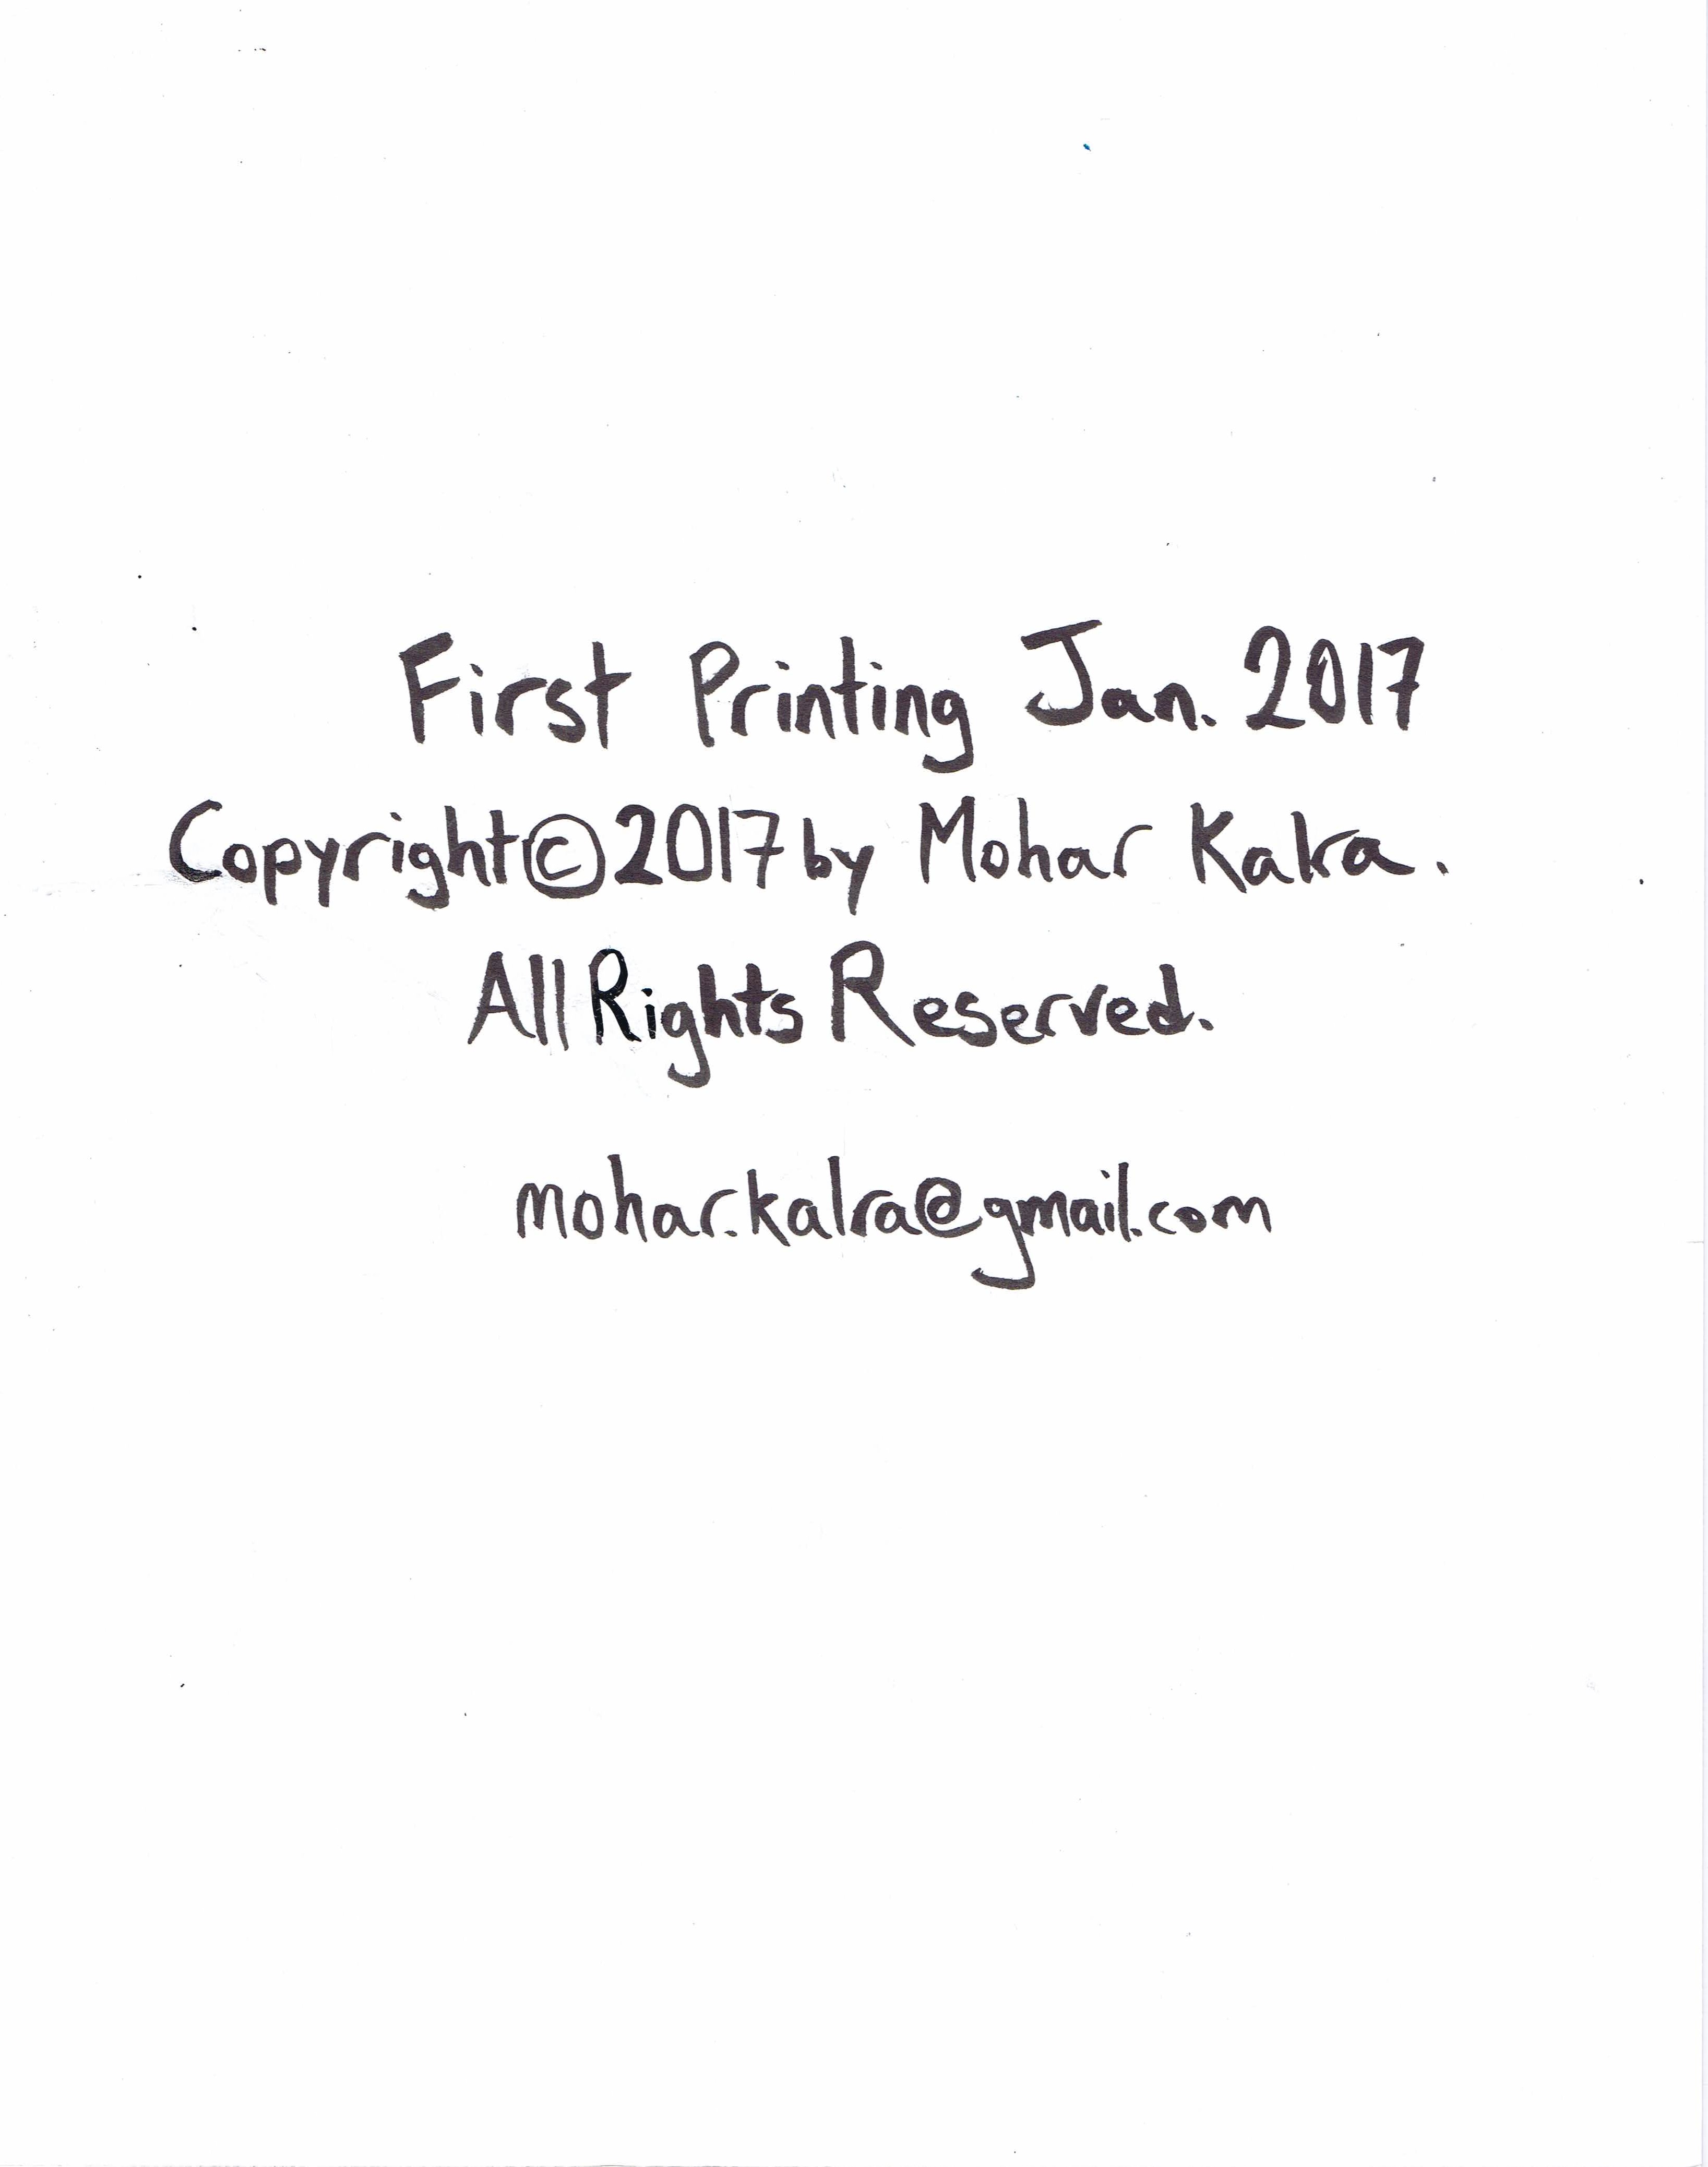 First Printing Jan. 2017
Copyright©2017 by Mohar Kalra.
All Rights Reserved.
mohar.kalra@gmail.com